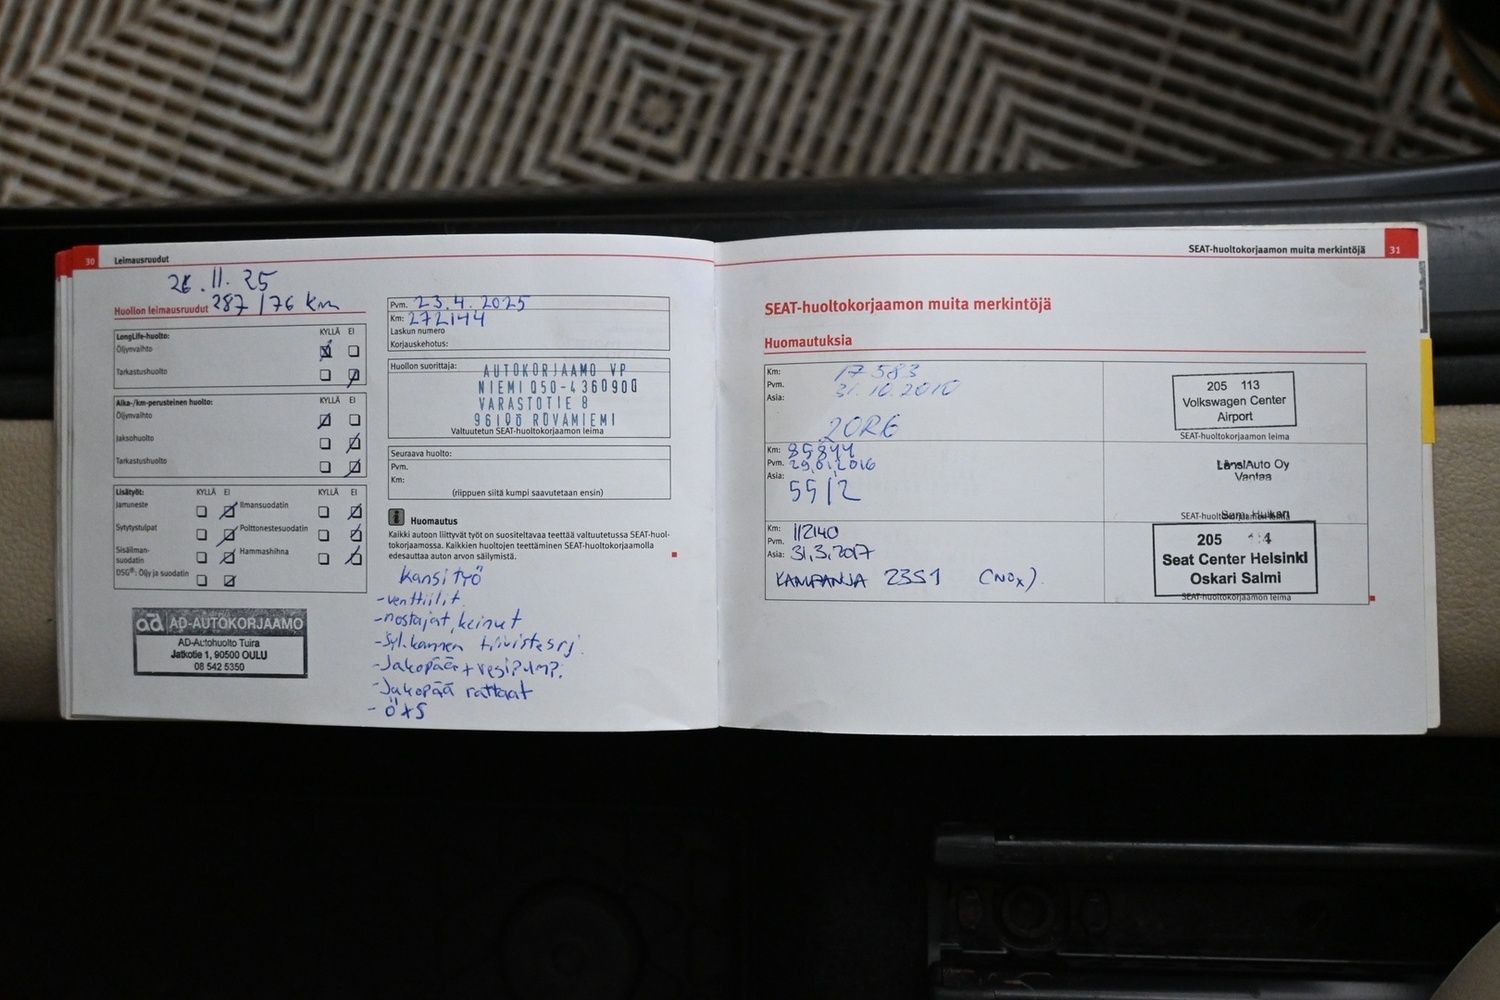 30 Leimausruudut
26.11.25
Huollon leimausruudut 287176 km
LongLife-huolto: KYLLÄ EI
Öljynvaihto
Tarkastushuolto
Aika-/km-perusteinen huolto: KYLLÄ EI
Öljynvaihto
Jaksohuolto
Tarkastushuolto
Lisätyöt: KYLLÄ EI KYLLÄ EI
Jarruneste Ilmansuodatin
Sytytystulpat Polttonestesuodatin
Sisäilman-
suodatin Hammashihna
DSG®: Öljy ja suodatin
ad AD-AUTOKORJAAMO
AD-Autohuolto Tuira
Jatkotie 1, 90500 OULU
08 542 5350
Pvm. 23.4.2025
Km: 272144
Laskun numero
Korjauskehotus:
Huollon suorittaja:
AUTOKORJAAMO VP
NIEMI 050-4360900
VARASTOTIE 8
96100 ROVANIEMI
Valtuutetun SEAT-huoltokorjaamon leima
Seuraava huolto:
Pvm.
Km:
(riippuen siitä kumpi saavutetaan ensin)
i Huomautus
Kaikki autoon liittyvät työt on suositeltavaa teettää valtuutetussa SEAT-huol-
tokorjaamossa. Kaikkien huoltojen teettäminen SEAT-huoltokorjaamolla
edesauttaa auton arvon säilymistä.
Kansityö
-venttiilit
-nostajat, keinut
-Syl.kannen tiivistesrj.
-Jakopää+vesipump.
-Jakopää rattaat
-Ö+S
SEAT-huoltokorjaamon muita merkintöjä 31
SEAT-huoltokorjaamon muita merkintöjä
Huomautuksia
Km: 17583
Pvm. 31.10.2010
Asia:
20R6
205 113
Volkswagen Center
Airport
SEAT-huoltokorjaamon leima
Km: 85844
Pvm. 29.01.2016
Asia:
55I2
LänsiAuto Oy
Vantaa
Km: 112140
Pvm.
Asia: 31.3.2017
KAMPANJA 23S1 (NOx).
205
Seat Center Helsinki
Oskari Salmi
SEAT-huoltokorjaamon leima